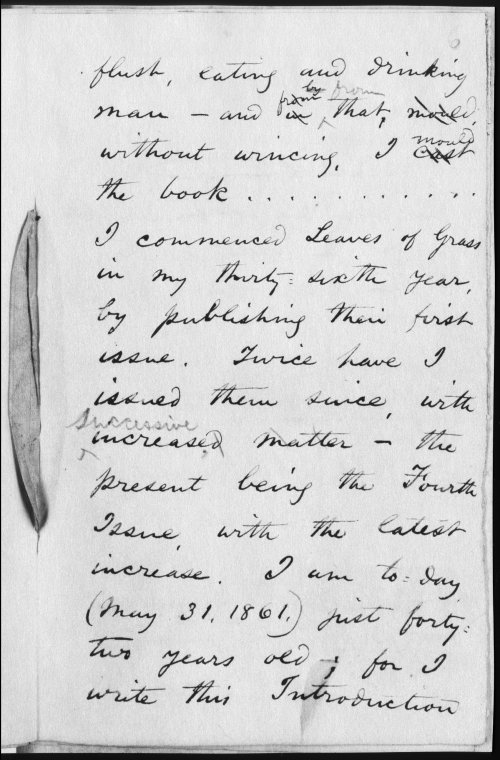 flush, eating and drinking
by from
man – and from in that, mould,
mould
without wincing, I cast
the book . . . . . . . . . . . .
I commenced Leaves of Grass
in my thirty-sixth year,
by publishing their first
issue. Twice have I
issued them since, with
successive
increased matter – the
present being the Fourth
Issue with the latest
increase. I am to-day
(May 31, 1861,) just forty-
two years old ; for I
write this Introduction